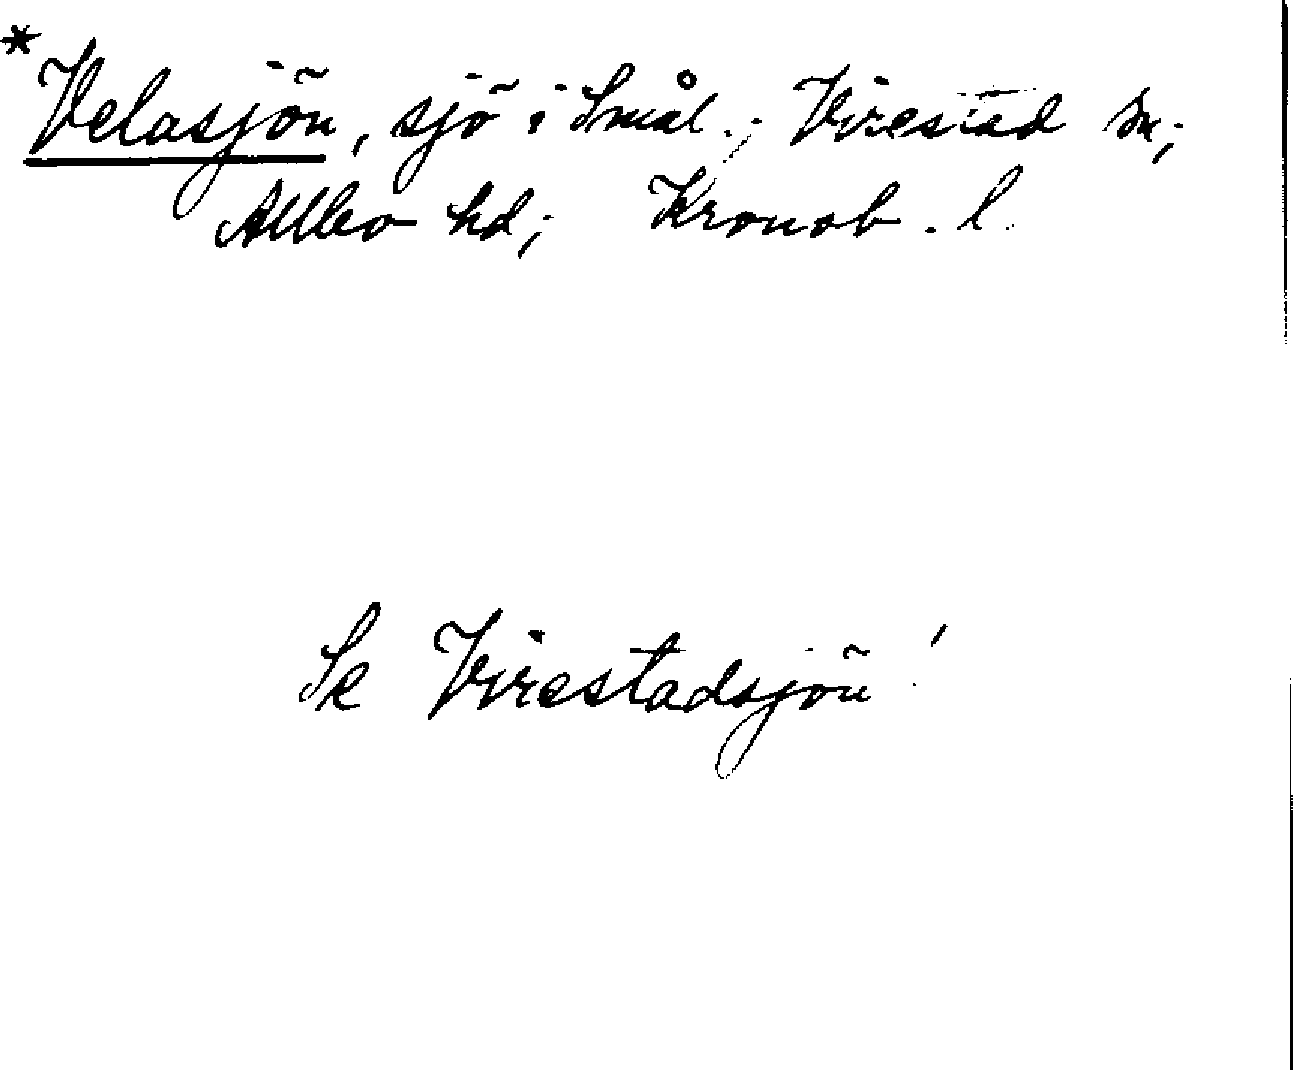 *Velasjön, sjö i Smål.; Virestad sn;
Allbo hd; Kronob. l.
Se Virestadsjön!